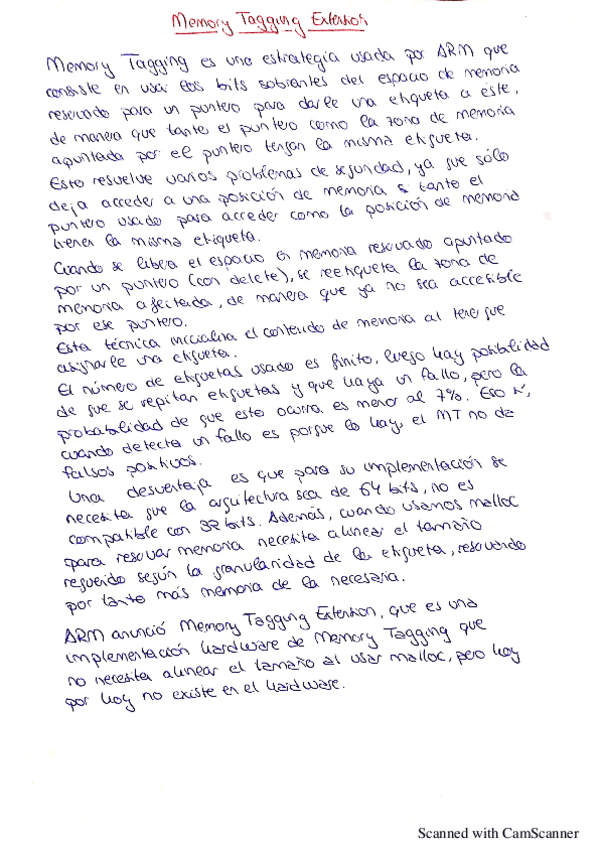 Memory Tagging Extension
Memory Tagging es una estrategia usada por ARM que
consiste en usar los bits sobrantes del espacio de memoria
reservado para un puntero para darle una etiqueta a éste,
de manera que tanto el puntero como la zona de memoria
apuntada por el puntero tengan la misma etiqueta.
Esto resuelve varios problemas de seguridad, ya que sólo
deja acceder a una posición de memoria si tanto el
puntero usado para acceder como la posición de memoria
tienen la misma etiqueta.
Cuando se libera el espacio en memoria reservado apuntado
por un puntero (con delete), se reetiqueta la zona de
memoria afectada, de manera que ya no sea accesible
por ese puntero.
Esta técnica inicializa el contenido de memoria al tener que
asignarle una etiqueta.
El número de etiquetas usado es finito, luego hay posibilidad
de que se repitan etiquetas y que haya un fallo, pero la
probabilidad de que esto ocurra es menor al 7%. Eso sí,
cuando detecta un fallo es porque lo hay, el MT no da
falsos positivos.
Una desventaja es que para su implementación se
necesita que la arquitectura sea de 64 bits, no es
compatible con 32 bits. Además, cuando usamos malloc
para reservar memoria necesita alinear el tamaño
requerido según la granularidad de la etiqueta, reservando
por tanto más memoria de la necesaria.
ARM anunció Memory Tagging Extension, que es una
implementación hardware de Memory Tagging que
no necesita alinear el tamaño al usar malloc, pero hoy
por hoy no existe en el hardware.
Scanned with CamScanner